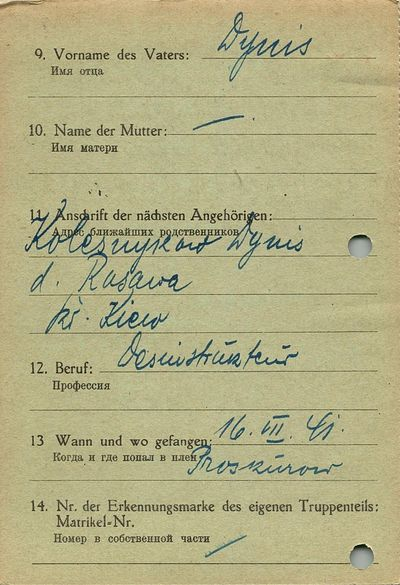 9. Vorname des Vaters: Dynis
Имя отца
10. Name der Mutter: —
Имя матери
11. Anschrift der nächsten Angehörigen:
Адрес ближайших родственников
Kolesnykow Dynis
d. Rasawa
kr. Kiew
12. Beruf: Desinstrukteur
Профессия
13 Wann und wo gefangen: 16. VII. 41.
Когда и где попал в плен Proskurow
14. Nr. der Erkennungsmarke des eigenen Truppenteils:
Matrikel-Nr.
Номер в собственной части